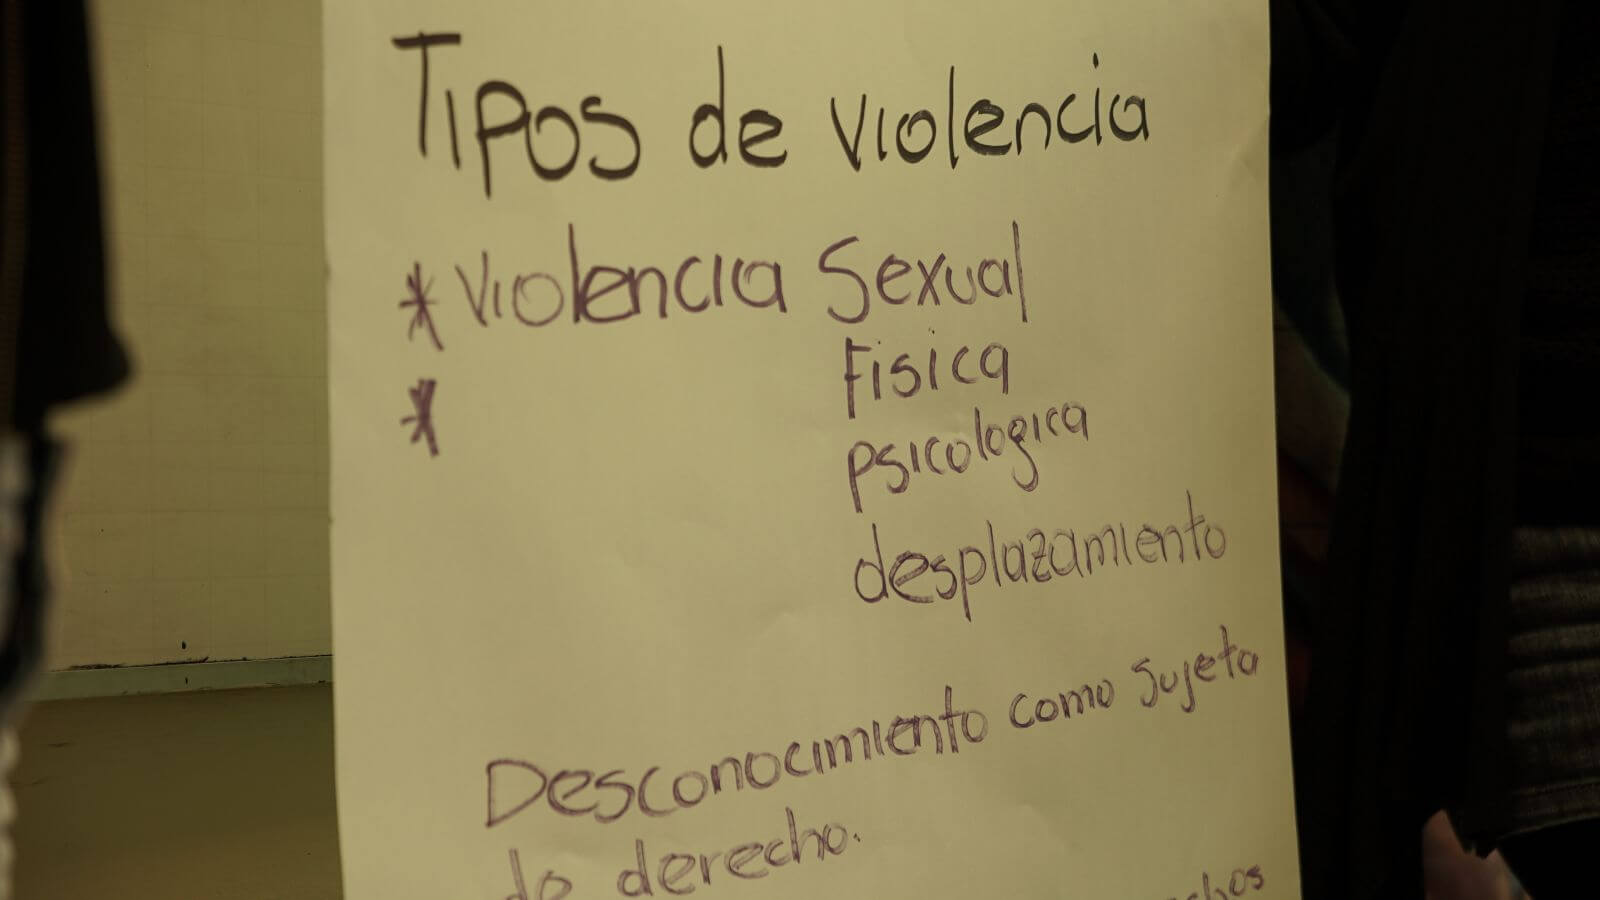 Tipos de violencia
* violencia Sexual
fisica
*
psicologica
desplazamiento
Desconocimiento como sujeta
de derecho.